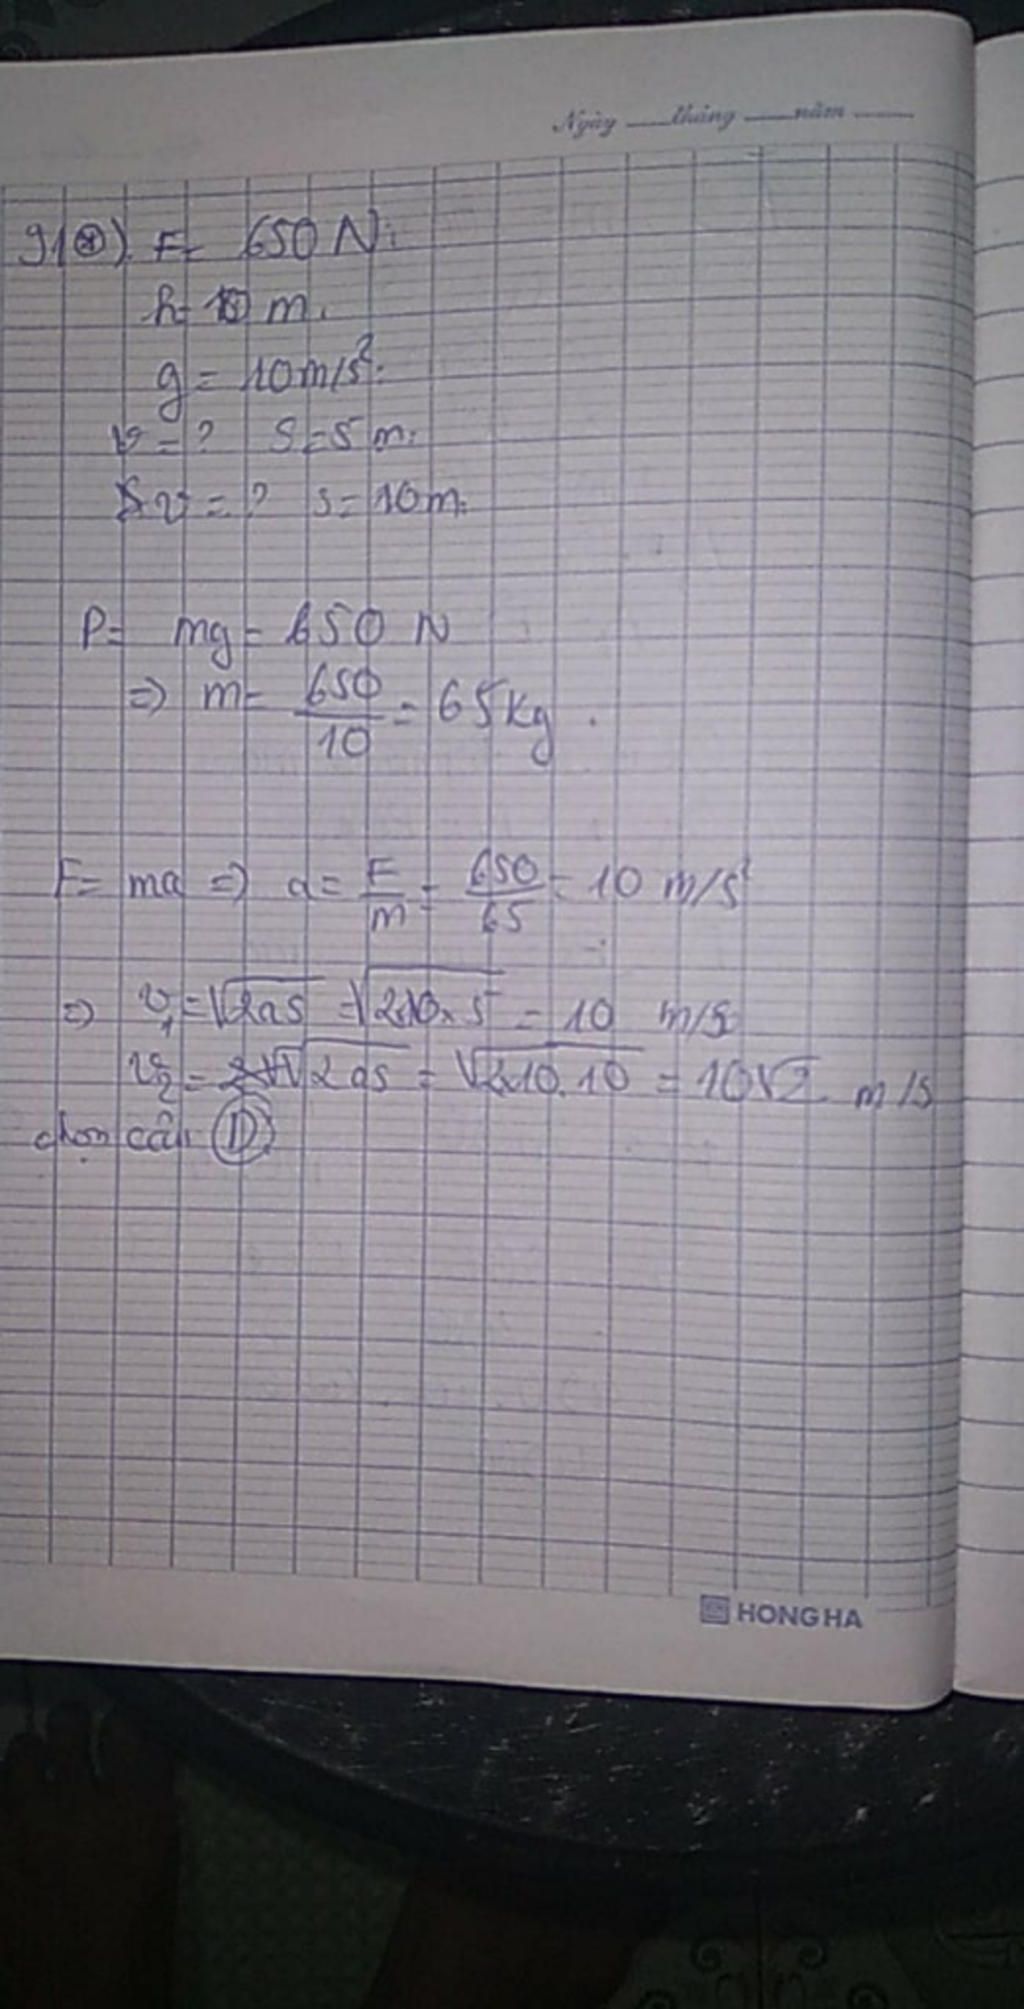 Ngày tháng năm
91(*). F= 650 N.
h= 10 m.
g = 10m/s².
v = ? S=5 m.
v = ? s= 10m.
P= mg = 650 N
=> m = 650/10 = 65kg.
F= ma => a = F/m = 650/65 = 10 m/s²
=> v₁=√2as =√2.10.5 = 10 m/s
v₂ = √2as = √2.10.10 = 10√2 m/s
chọn câu D
HONG HA